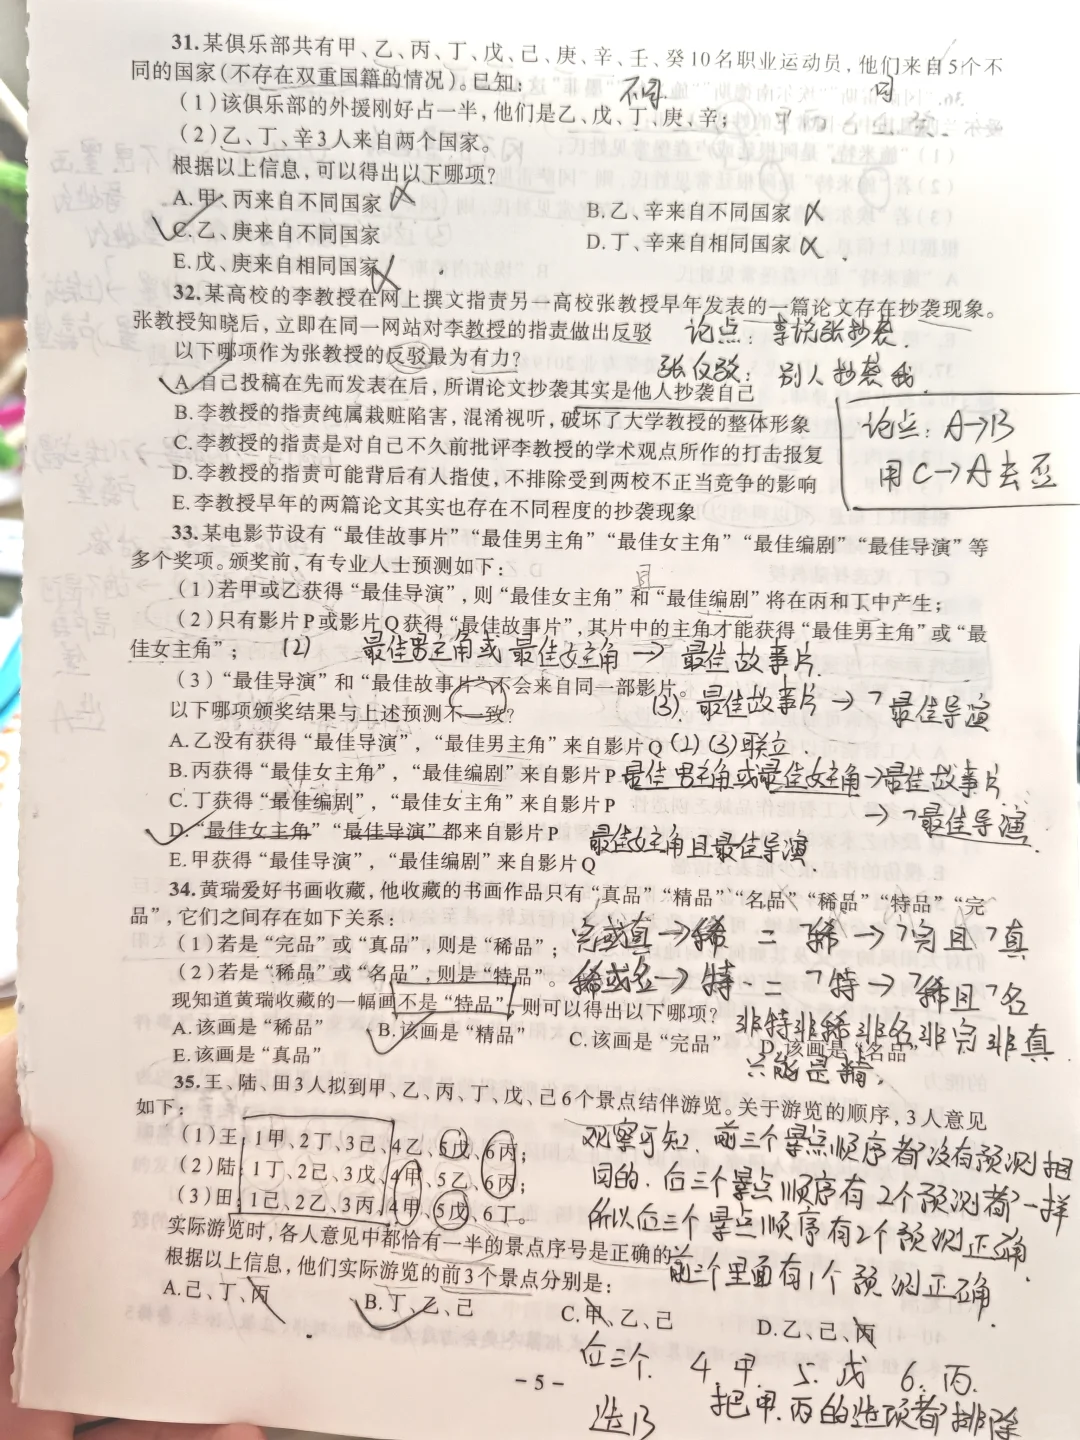 31.某俱乐部共有甲、乙、丙、丁、戊、己、庚、辛、壬、癸10名职业运动员,他们来自5个不
同的国家(不存在双重国籍的情况)。已知:
不同 同
(1)该俱乐部的外援刚好占一半,他们是乙、戊、丁、庚、辛;
(2)乙、丁、辛3人来自两个国家。
根据以上信息,可以得出以下哪项?
A.甲、丙来自不同国家
B.乙、辛来自不同国家
C.乙、庚来自不同国家
D.丁、辛来自相同国家
E.戊、庚来自相同国家
32.某高校的李教授在网上撰文指责另一高校张教授早年发表的一篇论文存在抄袭现象。
张教授知晓后,立即在同一网站对李教授的指责做出反驳
论点:李说张抄袭.
以下哪项作为张教授的反驳最为有力?
张反驳:别人抄袭我.
A.自己投稿在先而发表在后,所谓论文抄袭其实是他人抄袭自己
B.李教授的指责纯属栽赃陷害,混淆视听,破坏了大学教授的整体形象
论点:A→B
C.李教授的指责是对自己不久前批评李教授的学术观点所作的打击报复
用C→A去否
D.李教授的指责可能背后有人指使,不排除受到两校不正当竞争的影响
E.李教授早年的两篇论文其实也存在不同程度的抄袭现象
33.某电影节设有“最佳故事片”“最佳男主角”“最佳女主角”“最佳编剧”“最佳导演”等
多个奖项。颁奖前,有专业人士预测如下:
且
(1)若甲或乙获得“最佳导演”,则“最佳女主角”和“最佳编剧”将在丙和丁中产生;
(2)只有影片P或影片Q获得“最佳故事片”,其片中的主角才能获得“最佳男主角”或“最
佳女主角”;
(2) 最佳男主角或最佳女主角→最佳故事片.
(3)“最佳导演”和“最佳故事片”不会来自同一部影片。
(3).最佳故事片→¬最佳导演
以下哪项颁奖结果与上述预测不一致?
A.乙没有获得“最佳导演”,“最佳男主角”来自影片Q
(2)(3)联立.
B.丙获得“最佳女主角”,“最佳编剧”来自影片P
最佳男主角或最佳女主角→最佳故事片
C.丁获得“最佳编剧”,“最佳女主角”来自影片P
→¬最佳导演.
D.“最佳女主角”“最佳导演”都来自影片P
最佳女主角且最佳导演.
E.甲获得“最佳导演”,“最佳编剧”来自影片Q
34.黄瑞爱好书画收藏,他收藏的书画作品只有“真品”“精品”“名品”“稀品”“特品”“完
品”,它们之间存在如下关系:
(1)若是“完品”或“真品”,则是“稀品”;
完或真→稀 = ¬稀→¬完且¬真
(2)若是“稀品”或“名品”,则是“特品”。
稀或名→特.=¬特→¬稀且¬名
现知道黄瑞收藏的一幅画不是“特品”,则可以得出以下哪项?
非特非稀非名非完非真.
A.该画是“稀品”
B.该画是“精品”
C.该画是“完品”
D.该画是“名品”
E.该画是“真品”
只能是精.
35.王、陆、田3人拟到甲、乙、丙、丁、戊、己6个景点结伴游览。关于游览的顺序,3人意见
如下:
(1)王:1甲、2丁、3己、4乙、5戊、6丙;
观察可知.前三个景点顺序都没有预测相
(2)陆:1丁、2己、3戊、4甲、5乙、6丙;
同的.后三个景点顺序有2个预测都一样
(3)田:1己、2乙、3丙、4甲、5戊、6丁。
所以后三个景点顺序有2个预测正确.
实际游览时,各人意见中都恰有一半的景点序号是正确的
前三个里面有1个预测正确.
根据以上信息,他们实际游览的前3个景点分别是:
A.己、丁、丙
B.丁、乙、己
C.甲、乙、己
D.乙、己、丙
后三个. 4.甲. 5.戊 6.丙.
-5-
选B 把甲.丙的选项都排除